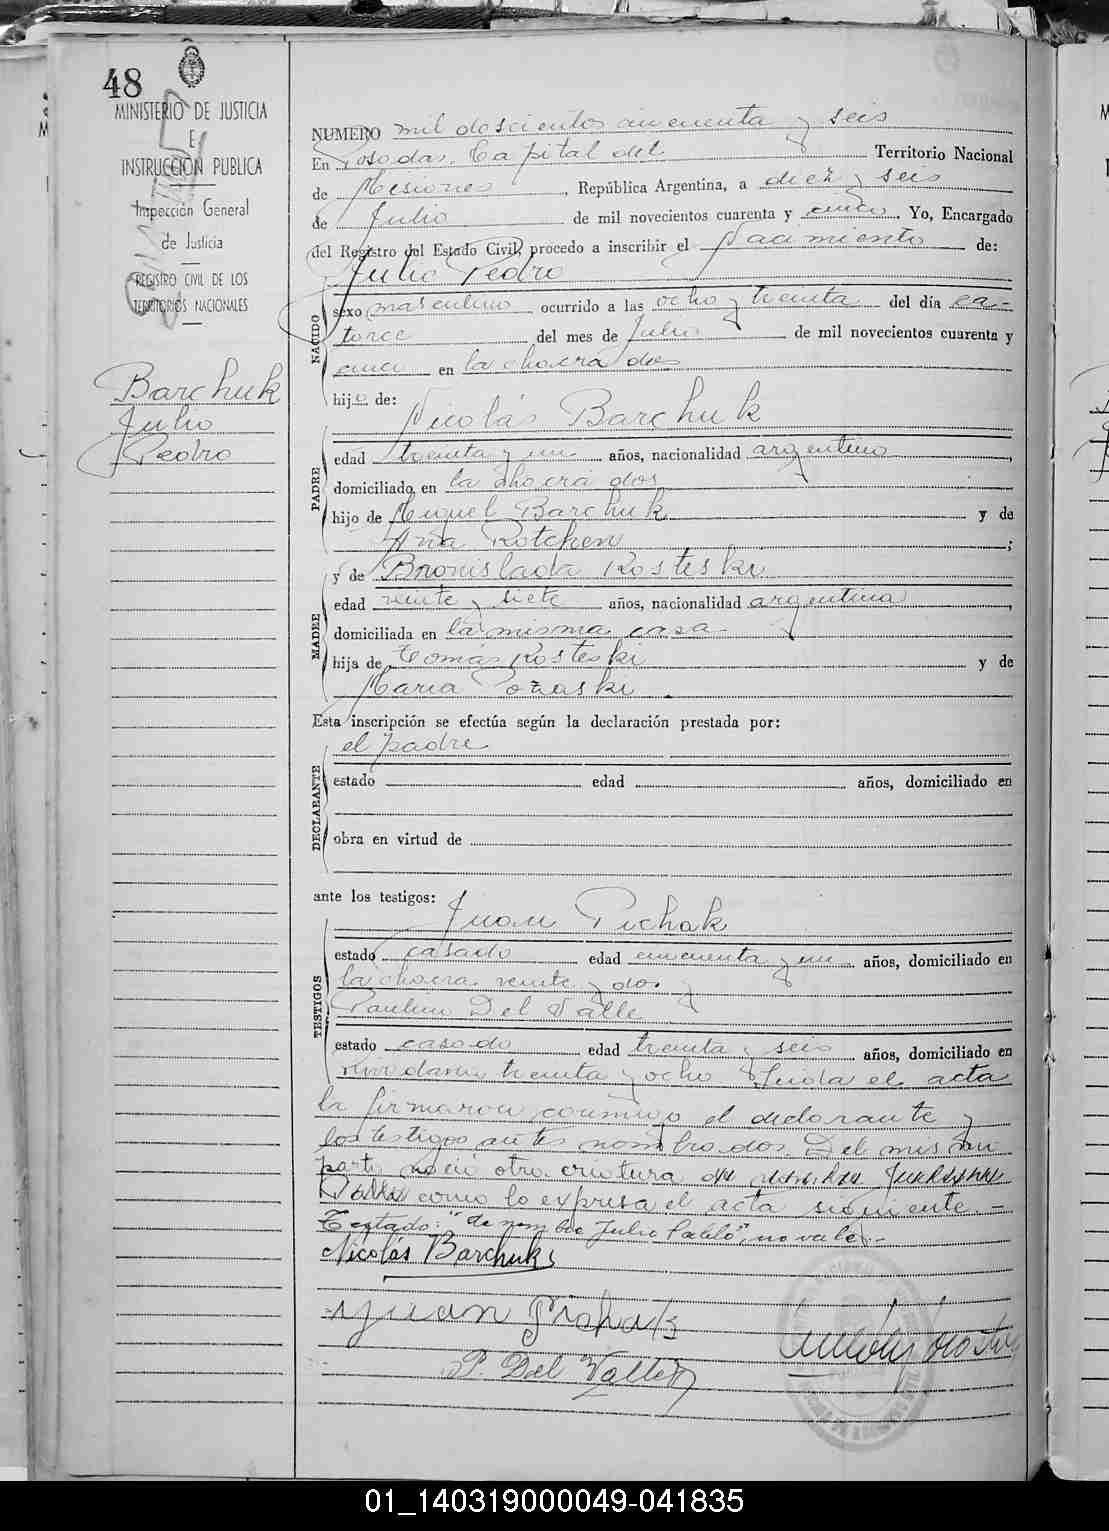 48
MINISTERIO DE JUSTICIA
E
INSTRUCCIÓN PUBLICA
Inspección General
de Justicia
REGISTRO CIVIL DE LOS
TERRITORIOS NACIONALES
Barchuk
Julio
Pedro
NUMERO mil doscientos cincuenta y seis
En Posadas, Capital del Territorio Nacional
de Misiones, República Argentina, a diez y seis
de Julio de mil novecientos cuarenta y cinco. Yo, Encargado
del Registro del Estado Civil, procedo a inscribir el Nacimiento de:
Julio Pedro
NACIDO
sexo masculino ocurrido a las ocho y treinta del día ca-
torce del mes de Julio de mil novecientos cuarenta y
cinco en la chacra dos
hijo de: Nicolás Barchuk
PADRE
edad treinta y un años, nacionalidad argentino,
domiciliado en la chacra dos
hijo de Miguel Barchuk y de
Ana Rotchen;
y de Bronislada Kosteski
MADRE
edad veinte y siete años, nacionalidad argentina,
domiciliada en la misma casa
hija de Tomás Kosteski y de
María Pozaski.
Esta inscripción se efectúa según la declaración prestada por:
el padre
DECLARANTE
estado edad años, domiciliado en
obra en virtud de
ante los testigos: Juan Pichak
TESTIGOS
estado casado edad cincuenta y un años, domiciliado en
la chacra veinte y dos y
Paulino Del Valle
estado casado edad treinta y seis años, domiciliado en
Rivadavia treinta y ocho. Leída el acta
la firmaron conmigo el declarante y
los testigos antes nombrados. Del mismo
parto nació otra criatura
como lo expresa el acta siguiente.-
Testado: "de nombre Julio Pablo", no vale.-
Nicolás Barchuk
Juan Pichak
P. Del Valle
01_140319000049-041835